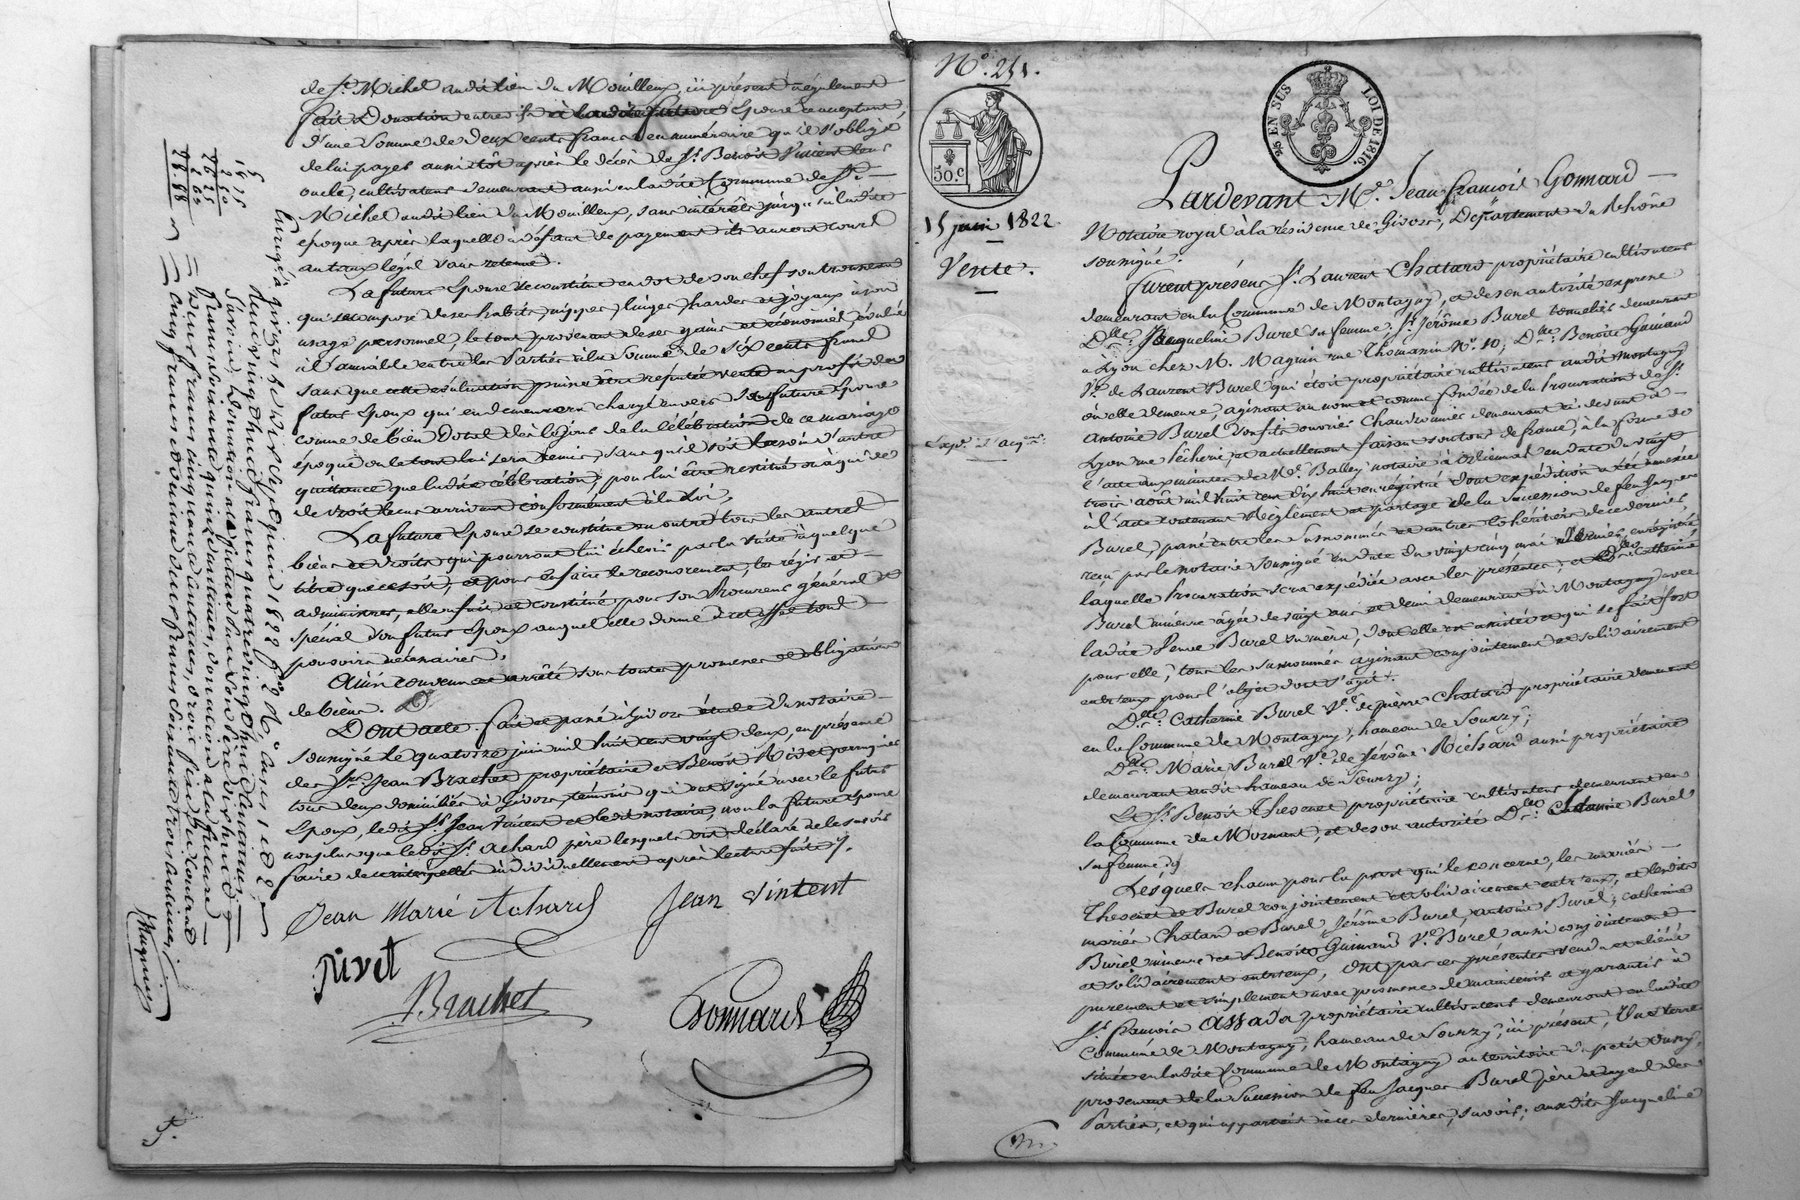 de St. Michel audit lieu du Mouilleux, ici présent a également
fait Donation entrevifs à ladite future Epouse ce acceptant
d'une Somme de deux cents francs en numéraire qu'il s'oblige
de lui payer aussitôt après le décès de Sr. Benoit Vincent leur
oncle, cultivateur demeurant aussi en ladite Commune de St.
Michel audit lieu du Mouilleux, sans intérêts jusqu'à ladite
époque après laquelle à défaut de payement ils auront cours
au taux légal sans retenue.
La future Epouse se constitue en dot de son chef son trousseau
qui se compose de ses habits, nippes, linges, hardes et joyaux à son
usage personnel, le tout provenant de ses gains et économies évalué
à l'amiable entre les Parties à la Somme de six cents francs
sans que cette évaluation puisse être réputée vente au profit du
futur Epoux qui en demeurera chargé envers la future Epouse
comme de bien Dotal dès le jour de la célébration de ce mariage
époque où le tout lui sera remis, sans qu'il soit besoin d'autre
quittance que ladite célébration, pour lui être restitué ou à qui de
de droit le cas arrivant conformément à la loi.
La future Epouse se constitue en outre tous les autres
biens et droits qui pourront lui échoir par la suite à quelque
titre que ce soit, et pour en faire le recouvrement, les régir et
administrer, elle en fait et constitue pour son Procureur général et
spécial son futur Epoux auquel elle donne à cet effet tous
pouvoirs nécessaires.
Ainsi convenu et arrêté sous toutes promesses et obligations
de biens.
Dont acte. fait et passé à Givors étude du notaire
soussigné le quatorze juin mil huit cent vingt deux, en présence
des Srs. Jean Brachet propriétaire et Benoit Rivet perruquier
tous deux domiciliés à Givors, témoins qui ont signé avec le futur
Epoux, ledit Sr. Jean Vincent et ledit notaire, non la future Epouse
non plus que ledit Sr. Achard père lesquels ont déclaré ne le savoir
faire de ce interpellés individuellement après lecture faite.
Jean Marie Achard
Jean Vincent
Rivet
Brachet
Gonnard
Enregistré à Givors le dix sept juin 1822 fo. 2 Ro. cases 1 et 2
Reçu vingt huit francs quatre vingt huit centimes,
Savoir, Donation
francs soixante quinze centimes, donation à la future
deux francs cinquante centimes, droit fixe du Contrat
cinq francs et dixième deux francs soixante trois centimes
16 75
2 50
5
2 63
No. 251.
30.c
15 juin 1822
Vente.
25 EN SUS LOI DE 1816.
Pardevant Me. Jean françois Gonnard
Notaire royal à la résidence de Givors, Département du Rhône
soussigné.
furent présens Sr. Laurent Chatard propriétaire cultivateur
demeurant en la Commune de Montagny, et de son autorité expresse
Dlle. Jacqueline Burel sa femme, Sr. Jérôme Burel tonnelier demeurant
à Lyon chez M. Magnin rue Thomassin No. 10, Dlle. Benoite Guinand
Ve. de Laurent Burel qui étoit propriétaire cultivateur audit Montagny
où elle demeure, agissant au nom et comme fondée de la Procuration de Sr.
Antoine Burel son fils ouvrier Chaudronnier demeurant ci devant à
Lyon rue Pêcherie, et actuellement faisant son tour de france, à la forme de
l'acte aux minutes de Me. Balley notaire à Orliénas en date du vingt
trois août mil huit cent dix huit enregistré dont expédition a été annexée
à l'acte contenant Règlement et partage de la succession de feu Jacques
Burel, passé entre les susnommés et autres Cohéritiers de ce dernier,
reçu par le notaire soussigné en date du vingt cinq mai dernier, enregistré
laquelle Procuration sera expédiée avec les présentes; et Dlle. Catherine
Burel mineure âgée de vingt ans et demi demeurant à Montagny avec
ladite Veuve Burel sa mère, dont elle est assistée et qui se fait fort
pour elle; tous les susnommés agissant conjointement et solidairement
entr'eux pour l'objet dont s'agit.
Dlle. Catherine Burel Ve. de pierre Chatard propriétaire demeurant
en la Commune de Montagny, hameau de Sourzy;
Dlle. Marie Burel Ve. de Jérôme Richard aussi propriétaire
demeurant audit hameau de Sourzy;
Et Sr. Benoit Thesenet propriétaire cultivateur demeurant en
la Commune de Mornant, et de son autorité Dlle. Burel
sa femme;
Lesquels chacun pour la part qui le concerne, les mariés
Thesenet et Burel conjointement et solidairement entr'eux, et lesdits
mariés Chatard et Burel, Jérôme Burel, antoine Burel, Catherine
Burel mineure et Benoite Guinand Ve. Burel aussi conjointement
et solidairement entr'eux, ont par ces présentes vendu et aliéné
purement et simplement avec promesse de maintenir et garantir à
Sr. françois Assada propriétaire cultivateur demeurant en ladite
Commune de Montagny, hameau de Sourzy, ici présent, Une terre
située en ladite Commune de Montagny au territoire du petit
provenant de la Succession de feu Jacques Burel père et ayeul des
Parties, et qui appartient à ces dernières, savoir; auxdits Jacqueline